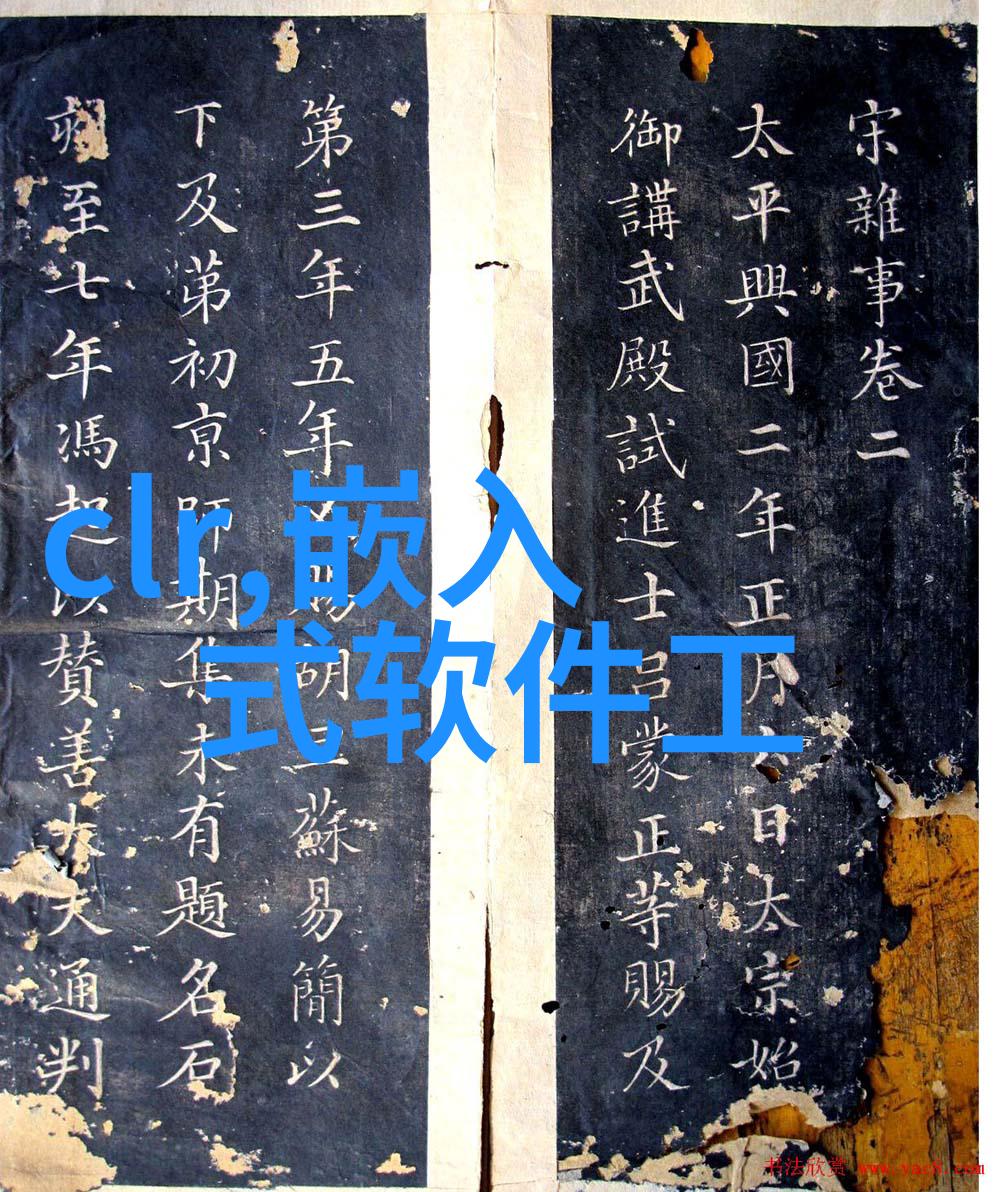 宋雜事卷二
太平興國二年正月六日太宗始
御講武殿試進士呂蒙正等賜及
第三年五年胡旦蘇易簡以
下及第初京師期集未有題名石
至七年馮起次贊善大夫通判
clr,嵌入
式软件工
书法欣赏 www.yac8.com